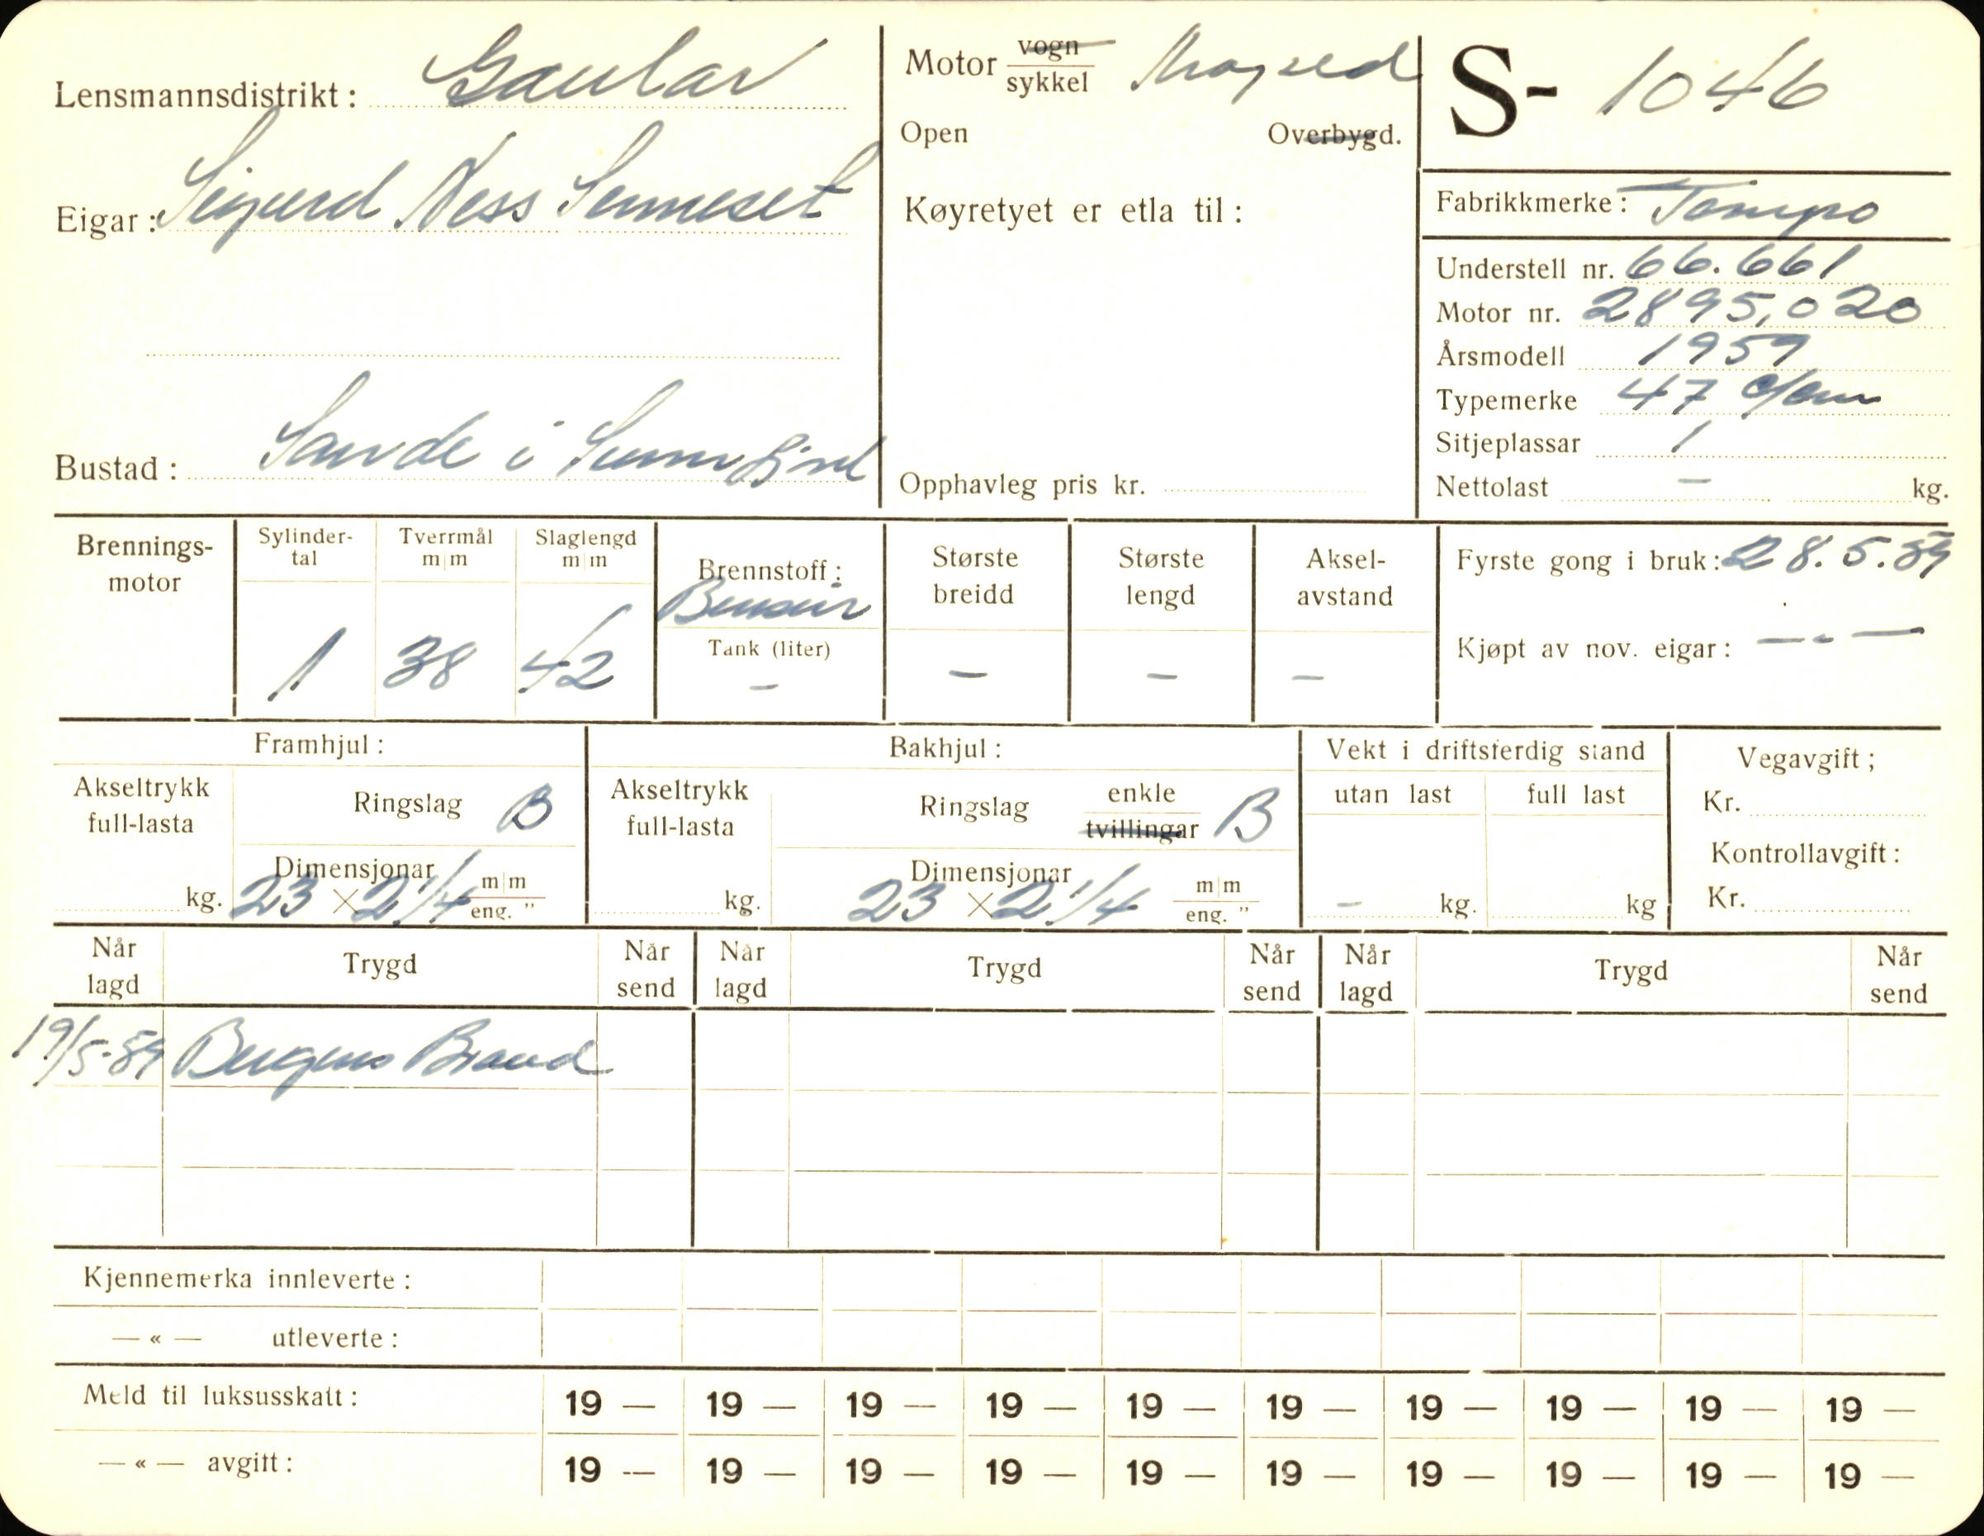 Lensmannsdistrikt: Gaular
Motor vogn sykkel Moped
S- 1046
Open Overbygd.
Eigar: Sigurd Ness Senneset
Køyretyet er etla til:
Fabrikkmerke: Tempo
Understell nr. 66.661
Motor nr. 2895,020
Årsmodell 1959
Typemerke 47 c/cm
Sitjeplassar 1
Bustad: Sande i Sunnfjord
Opphavleg pris kr.
Nettolast – kg.
Brennings-motor
Sylinder-tal
Tverrmål m|m
Slaglengd m|m
Brennstoff: Bensin
Største breidd
Største lengd
Aksel-avstand
Fyrste gong i bruk: 28.5.59
1 38 42
Tank (liter)
– – – –
Kjøpt av nov. eigar: — „ —
Framhjul:
Bakhjul:
Vekt i driftsferdig stand
Vegavgift;
Akseltrykk full-lasta
Ringslag B
Akseltrykk full-lasta
Ringslag enkle tvillingar B
utan last
full last
Kr.
Kontrollavgift:
kg.
Dimensjonar 23 × 2 1/4 m|m eng. "
kg.
Dimensjonar 23 × 2 1/4 m|m eng. "
– kg.
kg
Kr.
Når lagd Trygd Når send Når lagd Trygd Når send Når lagd Trygd Når send
19/5-59 Bergens Brand
Kjennemerka innleverte:
— « — utleverte:
Meld til luksusskatt: 19 — 19 — 19 — 19 — 19 — 19 — 19 — 19 — 19 — 19 —
— « — avgift: 19 — 19 — 19 — 19 — 19 — 19 — 19 — 19 — 19 — 19 —